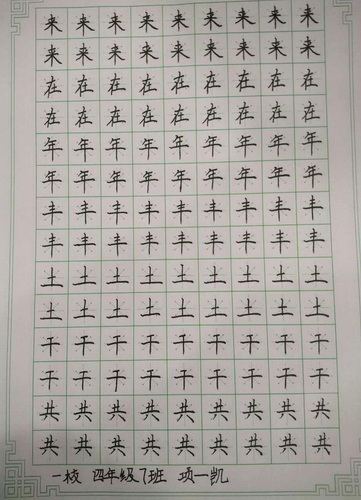 来来来来来来来来来
来来来来来来来来来
在在在在在在在在在
在在在在在在在在在
年年年年年年年年年
年年年年年年年年年
丰丰丰丰丰丰丰丰丰
丰丰丰丰丰丰丰丰丰
土土土土土土土土土
土土土土土土土土土
干干干干干干干干干
干干干干干干干干干
共共共共共共共共共
共共共共共共共共共
一校 四年级7班 项一凯